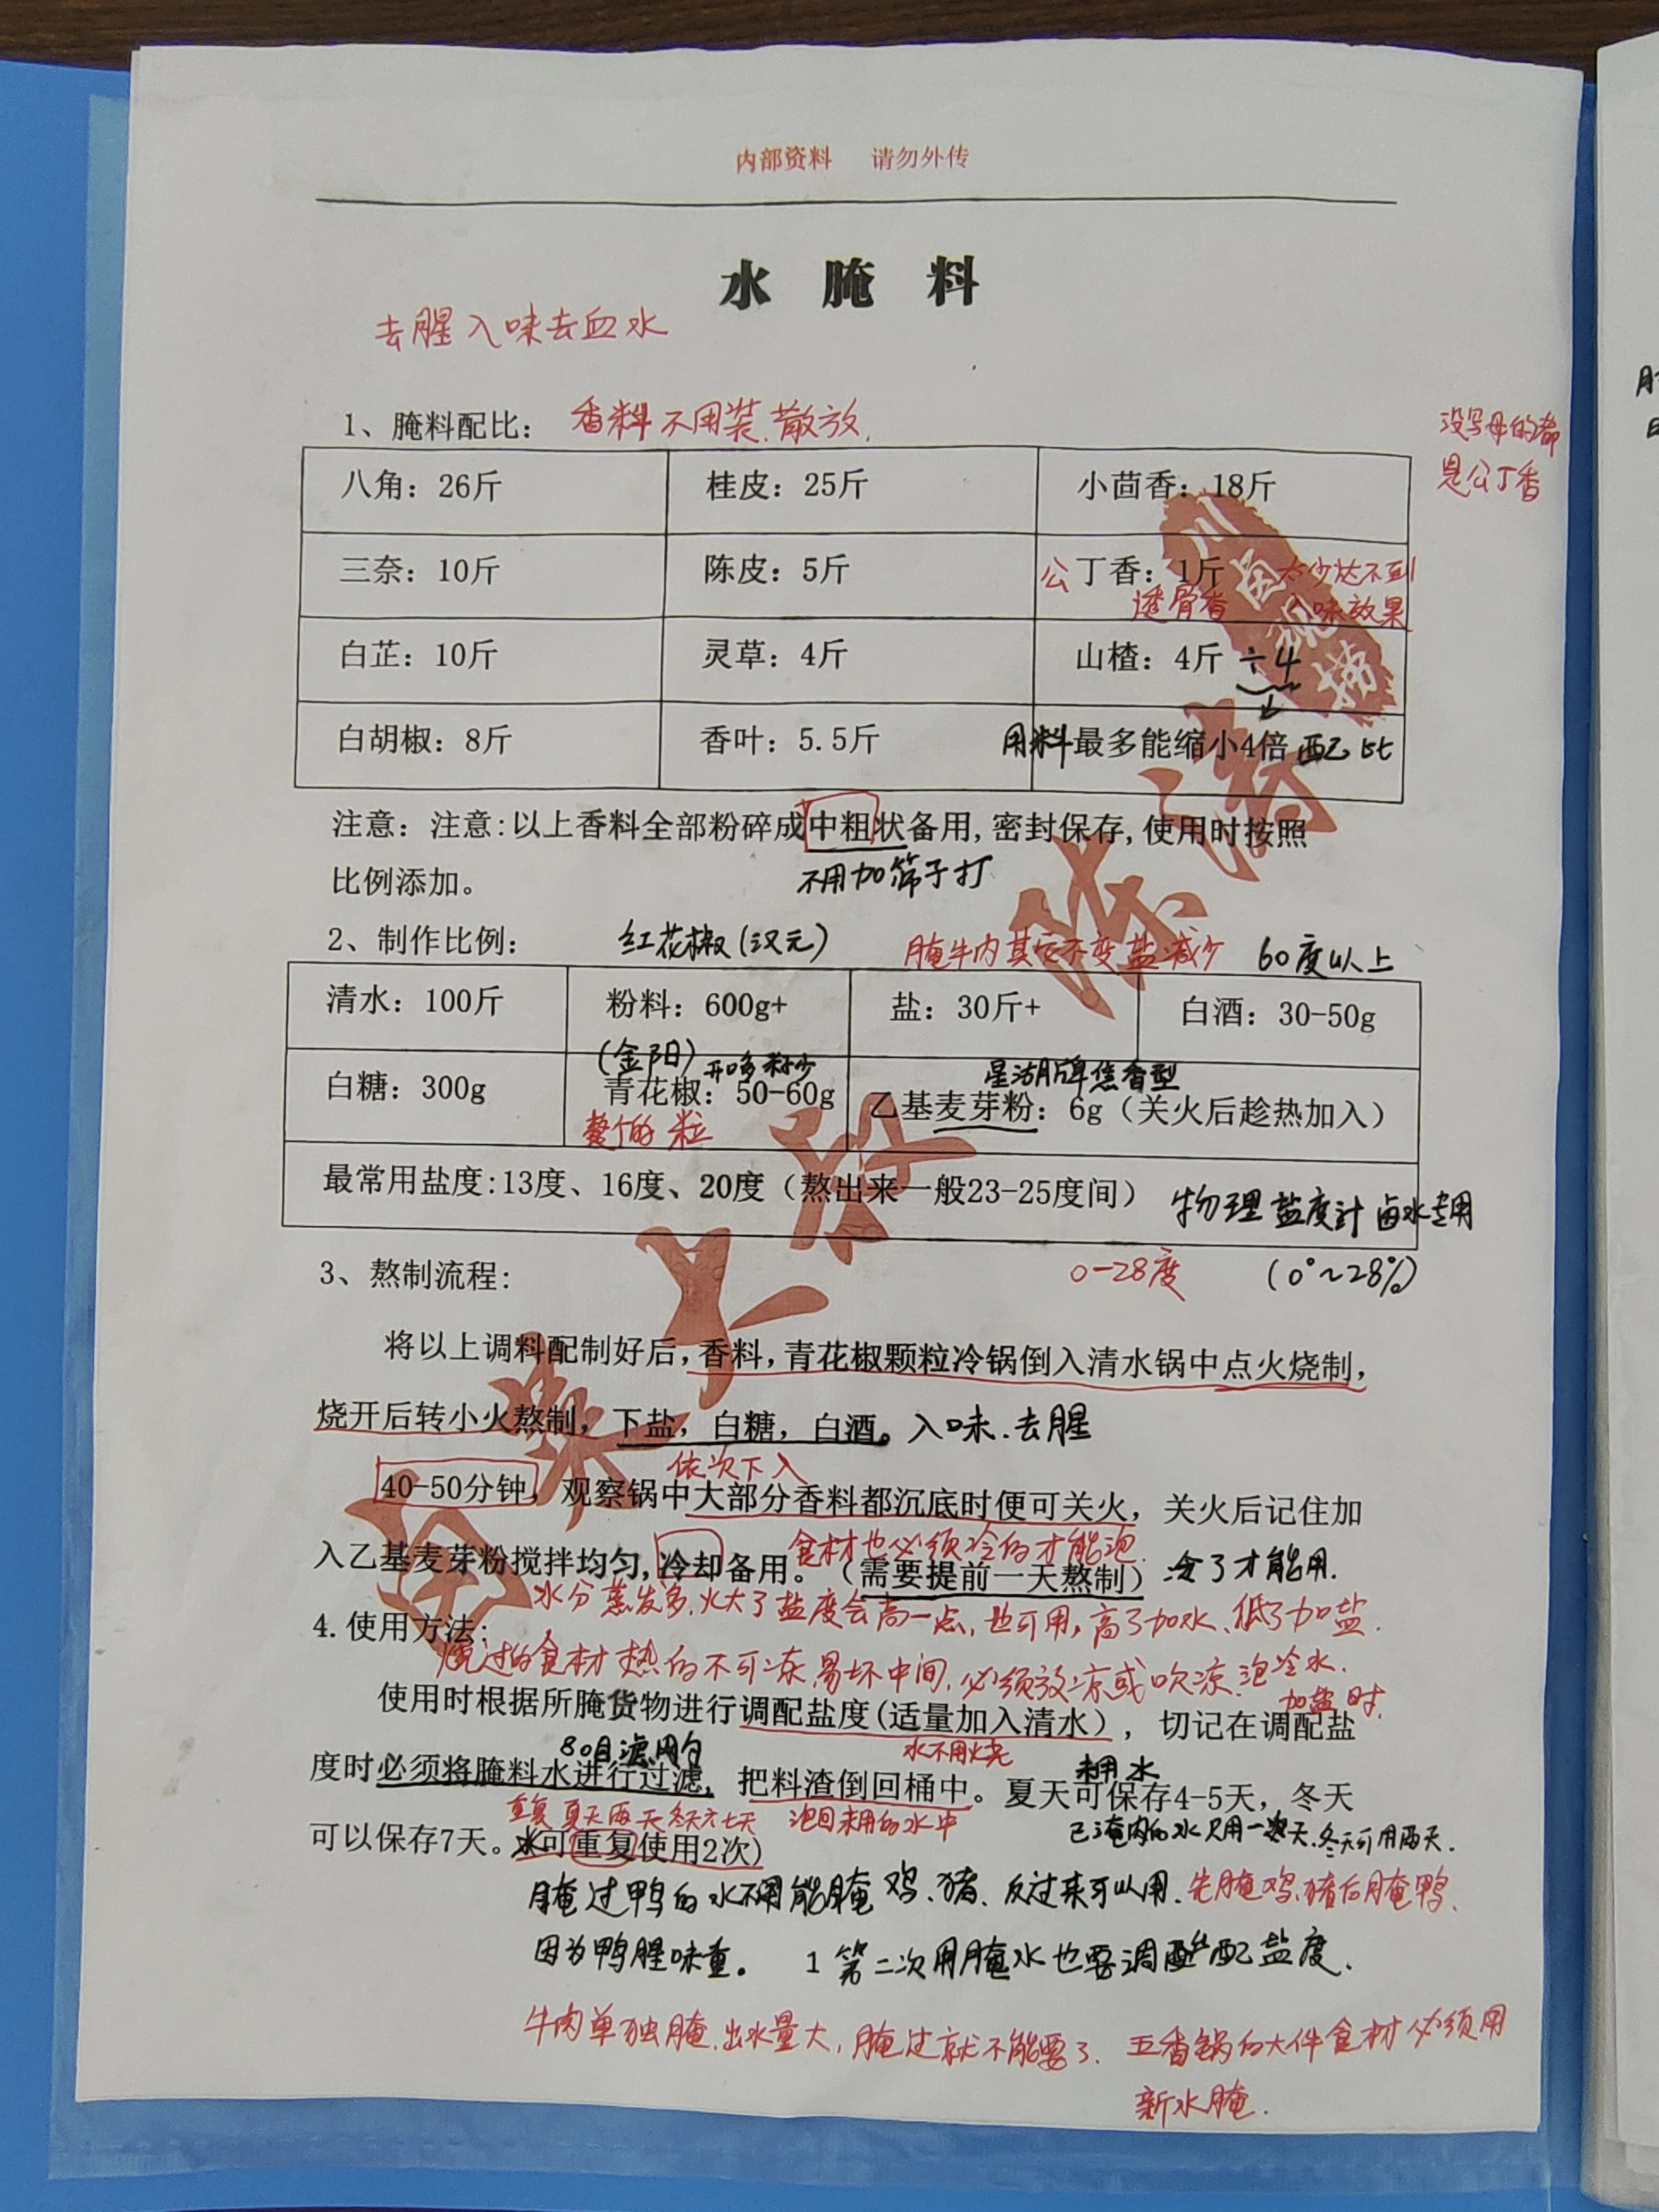 内部资料 请勿外传
水 腌 料
去腥入味去血水
1、腌料配比： 香料不用装.散放.
没写母的都
是公丁香
八角：26斤 桂皮：25斤 小茴香：18斤
三奈：10斤 陈皮：5斤 公丁香：1斤 太少达不到
透骨香 入味效果
白芷：10斤 灵草：4斤 山楂：4斤 ÷4
白胡椒：8斤 香叶：5.5斤 用料最多能缩小4倍配比
川卤视搒
注意：注意:以上香料全部粉碎成中粗状备用,密封保存,使用时按照
比例添加。 不用加筛子打
2、制作比例： 红花椒(汉元) 腌牛肉其它不变盐减少 60度以上
清水：100斤 粉料：600g+ 盐：30斤+ 白酒：30-50g
(金阳) 星湖牌焦香型
白糖：300g 青花椒：50-60g 乙基麦芽粉：6g（关火后趁热加入）
整个的 粒
最常用盐度:13度、16度、20度（熬出来一般23-25度间） 物理盐度计 卤水专用
3、熬制流程: 0-28度 (0°~28%)
将以上调料配制好后,香料,青花椒颗粒冷锅倒入清水锅中点火烧制,
烧开后转小火熬制, 下盐, 白糖, 白酒。入味.去腥
依次下入
40-50分钟, 观察锅中大部分香料都沉底时便可关火, 关火后记住加
食材也必须冷的才能泡.
入乙基麦芽粉搅拌均匀,冷却备用。（需要提前一天熬制）冷了才能用.
水分蒸发多.火大了盐度会高一点,也可用,高了加水、低了加盐.
4.使用方法:
过的食材热的不可冻.易坏中间.必须放凉或吹凉.泡冷水.
加盐时.
使用时根据所腌货物进行调配盐度(适量加入清水）, 切记在调配盐
80目滤网勺 水不用烧 未用水
度时必须将腌料水进行过滤, 把料渣倒回桶中。夏天可保存4-5天, 冬天
重复夏天两天冬天六七天 泡回未用的水中 已淹肉的水只用一天.冬天可用两天.
可以保存7天。水可重复使用2次)
腌过鸭的水不能腌鸡.猪.反过来可以用.先腌鸡.猪后腌鸭.
因为鸭腥味重。 1第二次用腌水也要调配盐度.
牛肉单独腌.出水量大,腌过就不能要了. 五香锅的大件食材必须用
新水腌.